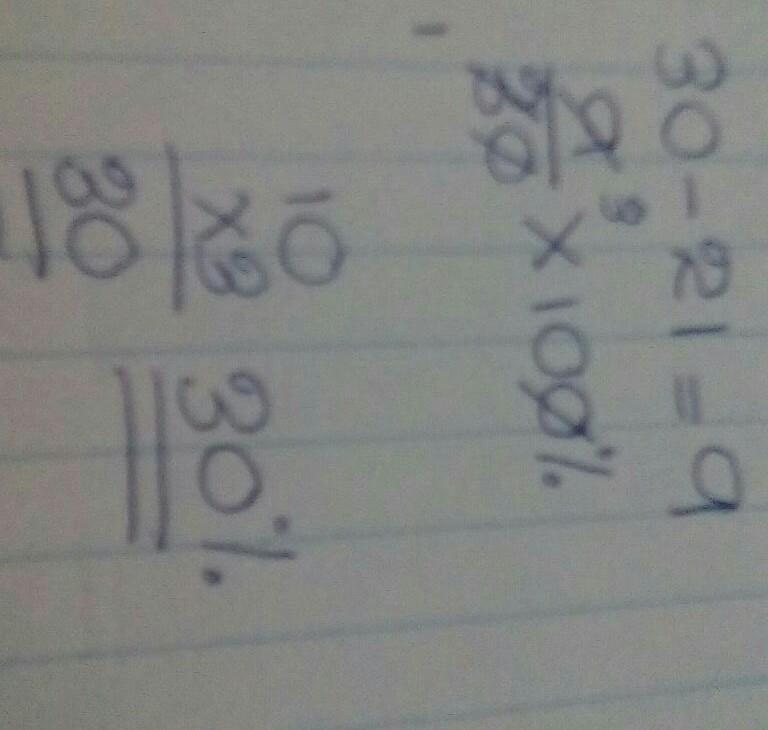 30 - 21 = 9
9 3
30 × 100%
10
×3
30
30%